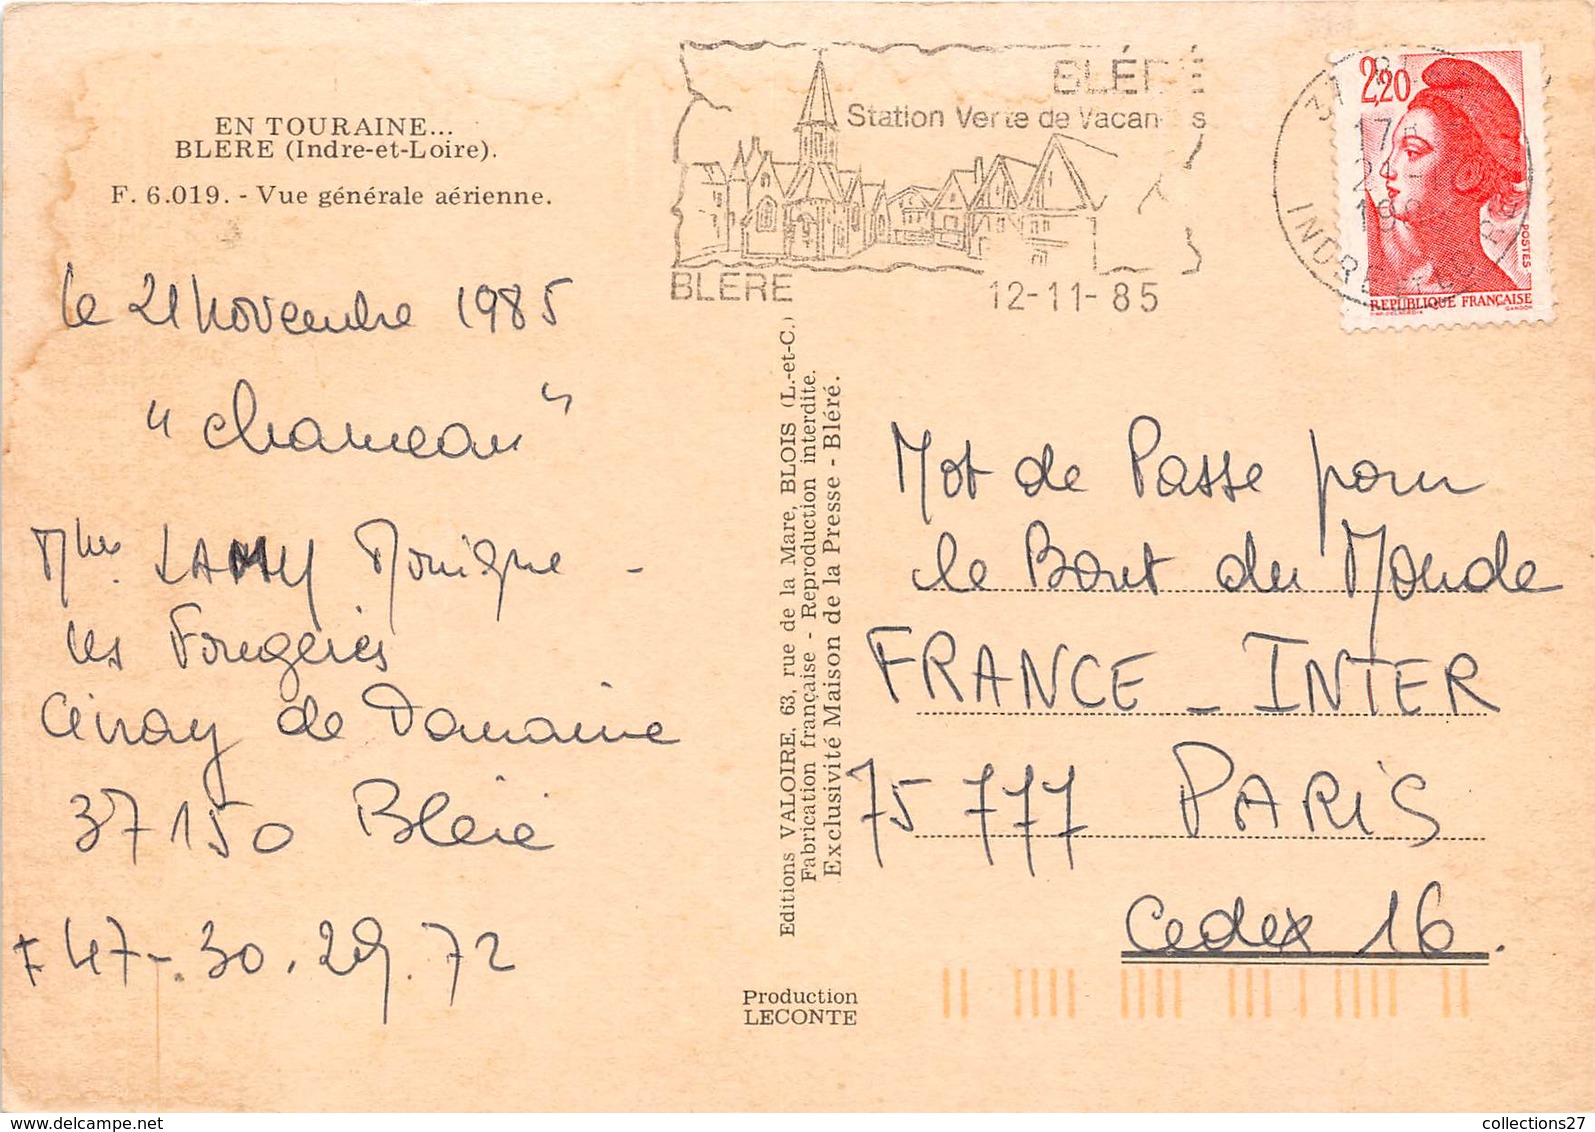 EN TOURAINE...
BLERE (Indre-et-Loire).
F. 6.019. - Vue générale aérienne.
le 21 Novembre 1985
"chameau"
LAMY Monique -
les Fougères
Civray de Touraine
37150 Bléré
47-.30.29.72
BLÉRÉ
Station Verte de Vacances
BLERE
12-11-85
17
21-
19
INDRE-ET-
2,20
POSTES
REPUBLIQUE FRANÇAISE
GANDON
Editions VALOIRE, 63, rue de la Mare, BLOIS (L.-et-C.)
Fabrication française - Reproduction interdite.
Exclusivité Maison de la Presse - Bléré.
Mot de Passe pour
le Bout du Monde
FRANCE - INTER
75 777 PARIS
Cedex 16.
Production
LECONTE
collections27